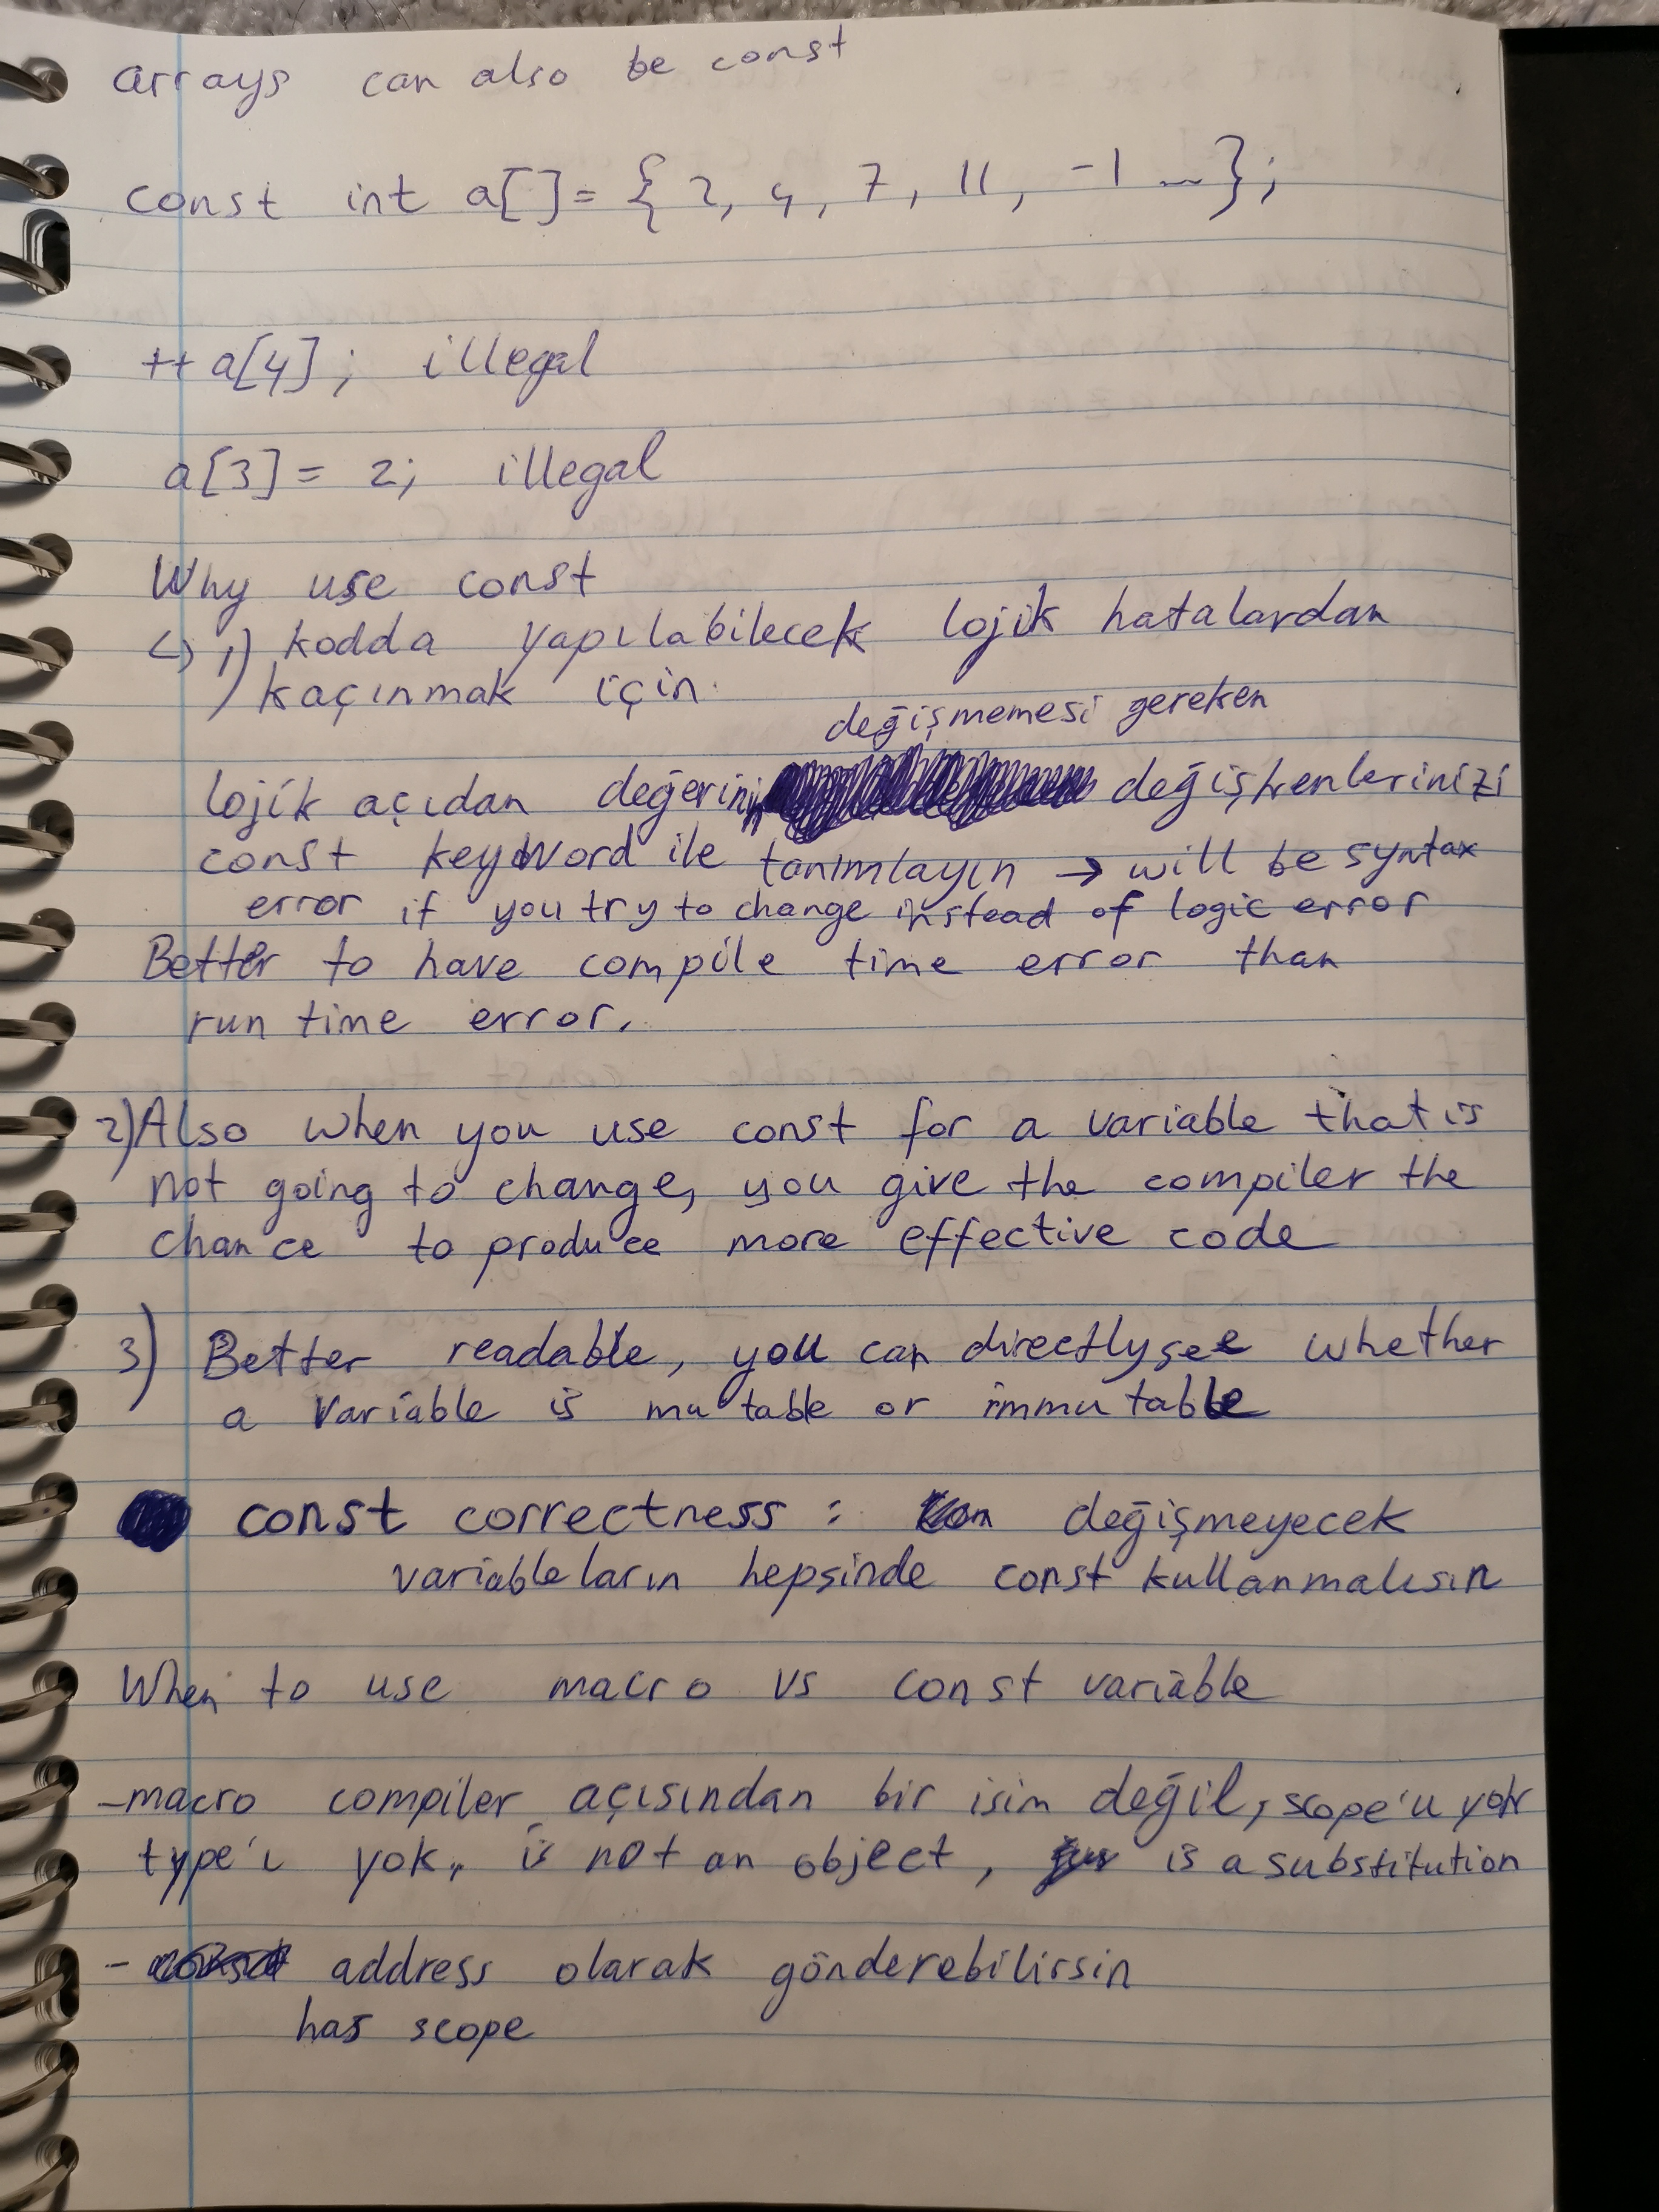 arrays can also be const
const int a[]= { 2, 4, 7, 11, -1 ...};
++a[4]; illegal
a[3]= 2; illegal
Why use const
↳ 1) kodda yapılabilecek lojik hatalardan
kaçınmak için.
değişmemesi gereken
lojik açıdan değerini değiştrenlerinizi
const keyword ile tanımlayın → will be syntax
error if you try to change instead of logic error
Better to have compile time error than
run time error.
2) Also when you use const for a variable that is
not going to change, you give the compiler the
chance to produce more effective code
3) Better readable, you can directly see whether
a variable is mutable or immutable
const correctness : değişmeyecek
variableların hepsinde const kullanmalısın
When to use macro vs const variable
-macro compiler açısından bir isim değil, scope'u yok
type'ı yok, is not an object, is a substitution
- address olarak gönderebilirsin
has scope